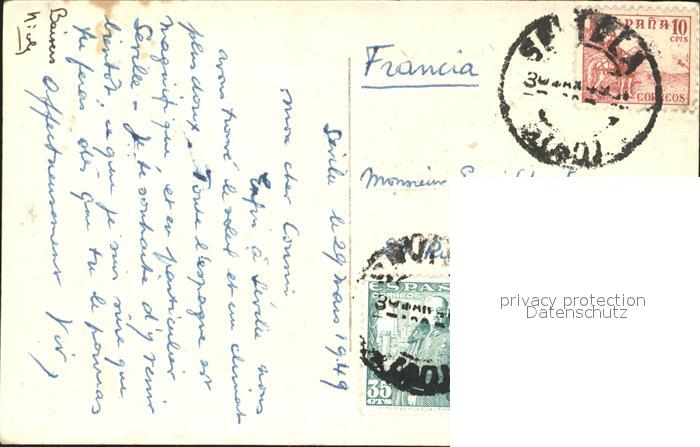 Séville le 29 Mars 1949
Mon cher Cousin
Enfin à Séville nous
avons trouvé le soleil et un climat
plus doux. Toute l'espagne est
magnifique et en particulier
Séville - Je te souhaite d'y venir
bientôt, ce que je suis sûre que
tu feras dès que tu le pourras
Affectueusement
Baisers
Francia
Monsieur
ESPAÑA 10
CMS
CORREOS
SEVILLA
ESPAÑA
CORREOS
35
CTS
privacy protection
Datenschutz